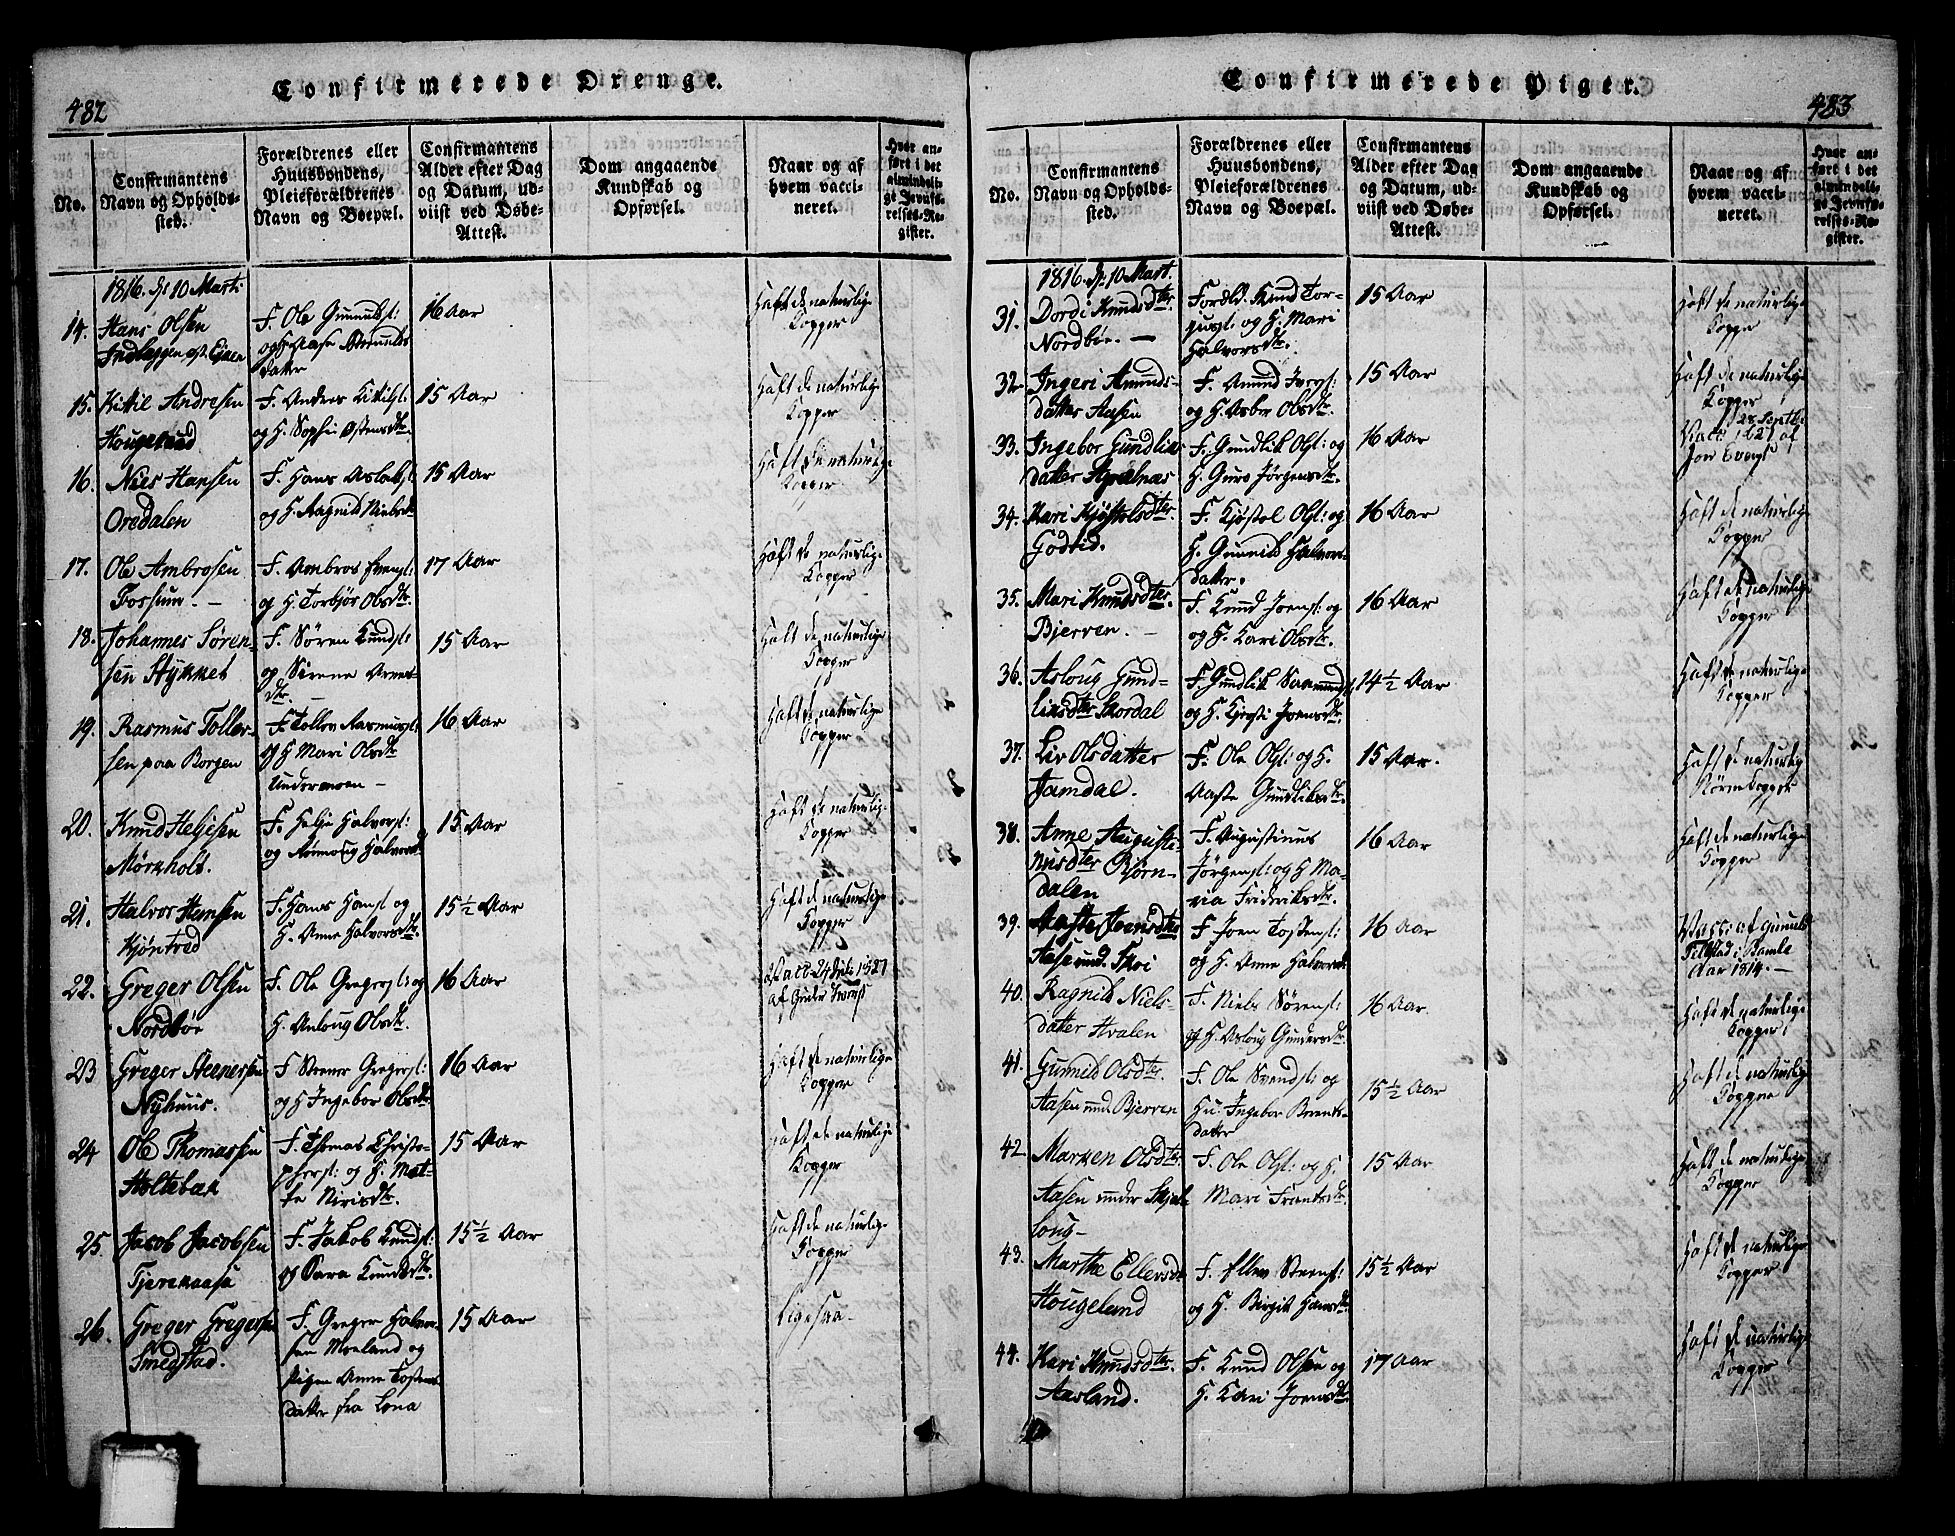 482
Confirmerede Drenge.
No.
Confirmantens
Navn og Opholds-
sted.
Forældrenes eller
Huusbondens,
Pleieforældrenes
Navn og Boepæl.
Confirmantens
Alder efter Dag
og Datum, ud-
viist ved Døbe-
Attest.
Dom angaaende
Kundskab og
Opførsel.
Naar og af
hvem vacci-
neret.
Hvor an-
ført i det
almindeli-
ge Jevnfø-
relses-Re-
gister.
1816. d: 10 Marti
14.
Hans Olsen
F. Ole Gunnulds:
og H. Aase
datter
16 Aar
Haft de naturlige
Kopper
15.
Kittil Andresen
Hougelund
F. Anders Kittils:
og H. Sophie Ostensdtr.
15 Aar
Haft de naturlige
Kopper
16.
Niels Hansen
Oredalen
F. Hans Aslaks:
og H. Ragnild Nielsdtr
15 Aar
Haft de naturlige
Kopper
17.
Ole Ambrosen
Fossum. -
F. Ambros Svens:
og H. Torbjør Olsdtr.
17 Aar
Haft de naturlige
Kopper
18.
Johannes Søren-
sen Stykket
F. Søren Knuds:
og Sirene Arnes-
dtr. -
15 Aar
Haft de naturlige
Kopper
19.
Rasmus Toller-
sen paa Borgen
F. Tollev Rasmuss:
og H. Mari Olsdtr
16 Aar
Haft de naturlige
Kopper
20.
Knud Heljesen
Mørkholt.
F. Helje Halvors:
og Halvorsd
15 Aar
Haft de naturlig-
Kopper
21.
Halvor Hansen
Kjøntved
F. Hans Hans: og
H. Anne Halvorsdtr.
15½ Aar
Haft de naturlige
Kopper
22.
Greger Olsen
Nordbøe
F. Ole Gregers: og
H. Anloug Olsdtr.
16 Aar
23
Greger Steenersen
Nyhuus.
F. Steener Gregers:
og H. Ingebor Olsdtr.
16 Aar
Haft de naturlige
Kopper
24
Ole Thomassen
Holtebak
F. Thomas Christo-
phers: og H. Met-
te Nirisdtr.
15 Aar
Haft de naturlige
Kopper
25
Jacob Jacobsen
Tjerekaasa
F. Jakob Knuds:
og Sara Knudsdtr.
15½ Aar
Haft de naturlige
Kopper
26.
Greger Gregersen
Smedstad.
F. Greger Halvor-
sen Moeland og
Pigen Anne Tostens
datter fra Lona
15 Aar
ligesaa.
Confirmerede Piger.
483
No.
Confirmantens
Navn og Opholds-
sted.
Forældrenes eller
Huusbondens,
Pleieforældrenes
Navn og Boepæl.
Confirmantens
Alder efter Dag
og Datum, ud-
viist ved Døbe-
Attest.
Dom angaaende
Kundskab og
Opførsel.
Naar og af
hvem vacci-
neret.
Hvor an-
ført i det
almindeli-
ge Jevnfø-
relses-Re-
gister.
1816. d: 10 Mart.
31.
Dordi Knudsdter.
Nordbøe. -
Foreld. Knud Tor-
jus: og H. Mari
Halvorsdtr.
15 Aar
Haft de naturlige
Kopper
32.
Ingeri Amunds-
datter Aasen
F. Amund Ivers:
og H. Asber Olsdtr.
15 Aar
Haft de naturlige
Kopper
33.
Ingebor Gundliks
datter
F. Gundlik Ols: og
H. Guro Jørgensdtr.
16 Aar
34.
Kari Kjøstolsdter.
Godtid.
F. Kjøstol Ols: og
H. Gunnild Halvors-
datter.
16 Aar
Haft de naturlige
Kopper
35.
Mari Knudsdter.
Bjerven. -
F. Knud Joens: og
og H. Kari Olsdtr.
16 Aar
Haft de naturlige
Kopper
36.
Asloug Gund-
liksdter Skordal
F. Gundlik Saamunds:
og H. Kjersti Joensdtr.
14½ Aar
Haft de naturlige
Kopper
37.
Liv Olsdatter
Jamdal.
F. Ole Ols: og H.
Aaste Gundliksdtr.
15 Aar.
Haft de naturlig
38.
Anne Auguste-
nusdter Bjørn-
dalen
F. Augustinus
Jørgens: og H. Ma-
ria Fridriksdtr.
16 Aar
Haft de naturlige
Kopper
39.
Aaste Joensdter
Aase und. Skoi
F. Joen Tostens:
og H. Anne Halvorsd
16 Aar
Vacc: af Gunuld
Tilstad i Bamle
Aar 1814. -
40.
Ragnild Niels-
datter Hvalen
F. Niels Sørens:
og H. Asloug Gundersdtr.
16 Aar.
Haft de naturlige
Kopper
41.
Gunnild Olsdter.
Aasen und. Bjerven
F. Ole Svends: og
Hu. Ingebor Brents-
datter
15½ Aar
Haft de naturlige
Kopper
42
Marken Olsdter.
Aasen under Skjel-
loug-
F. Ole Ols: og H.
Mari Frantsdtr.
15 Aar
Haft de naturlige
Kopper
43.
Marthe Ellersdtr
Hougelund
F. Ellev Steens:
og H. Birgit Hansdtr.
15½ Aar
Haft de naturlige
Kopper
44.
Kari Knudsdter.
Aasland.
F. Knud Olsen og
H. Kari Joensdtr.
17 Aar
Haft de naturlige
Kopper